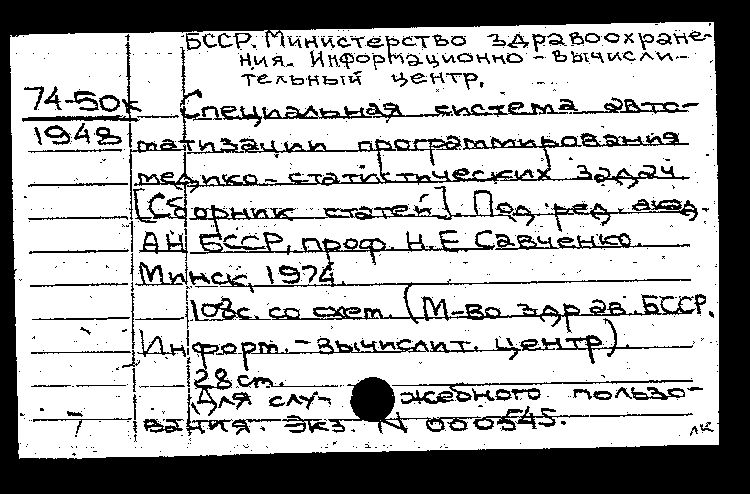 БССР. Министерство здравоохране-
ния. Информационно-вычисли-
тельный центр.
74-50к
1948
Специальная система авто-
матизации программирования
медико-статистических задач
[Сборник статей]. Под ред. акад.
АН БССР, проф. Н.Е. Савченко.
Минск, 1974.
108с. со схем. (М-во здрав. БССР.
Информ.-вычислит. центр).
28см.
Для слу- жебного пользо-
вания. Экз. N 000545.
лк